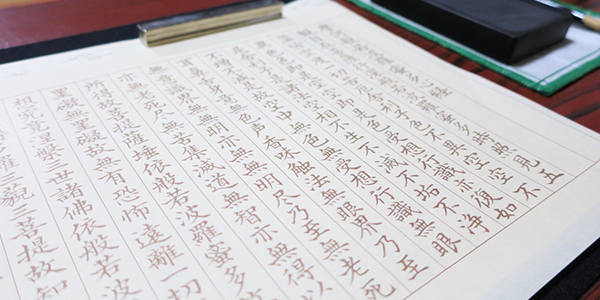 蜜多時照見五
色不異空空不
即是色受想行識亦復如
空相不生不滅不垢不浄
不増不減是故空中無色無受想行識無眼
耳鼻舌身意無色声香味触法無眼界乃至
無意識界無無明亦無無明尽乃至無老死
亦無老死尽無苦集滅道無智亦無得以
所得故菩提薩埵依般若波羅蜜多故
罣礙無罣礙故無有恐怖遠離一切
想究竟涅槃三世諸佛依般若波
羅三藐三菩提故知